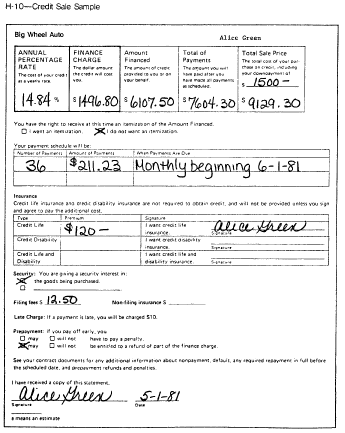 H-10—Credit Sale Sample
Big Wheel Auto Alice Green
ANNUAL PERCENTAGE RATE
The cost of your credit as a yearly rate.
14.84 %
FINANCE CHARGE
The dollar amount the credit will cost you.
$1496.80
Amount Financed
The amount of credit provided to you or on your behalf.
$6107.50
Total of Payments
The amount you will have paid after you have made all payments as scheduled.
$7604.30
Total Sale Price
The total cost of your purchase on credit, including your downpayment of
$ 1500 —
$9129.30
You have the right to receive at this time an itemization of the Amount Financed.
☐ I want an itemization. ☒ I do not want an itemization.
Your payment schedule will be:
Number of Payments Amount of Payments When Payments Are Due
36 $211.23 Monthly beginning 6-1-81
Insurance
Credit life insurance and credit disability insurance are not required to obtain credit, and will not be provided unless you sign and agree to pay the additional cost.
Type Premium Signature
Credit Life $120— I want credit life insurance. Alice Green Signature
Credit Disability I want credit disability insurance. Signature
Credit Life and Disability I want credit life and disability insurance. Signature
Security: You are giving a security interest in:
☒ the goods being purchased.
☐
Filing fees $ 12.50 Non-filing insurance $
Late Charge: If a payment is late, you will be charged $10.
Prepayment: If you pay off early, you
☐ may ☐ will not have to pay a penalty.
☒ may ☐ will not be entitled to a refund of part of the finance charge.
See your contract documents for any additional information about nonpayment, default, any required repayment in full before the scheduled date, and prepayment refunds and penalties.
I have received a copy of this statement.
Alice Green 5-1-81
Signature Date
e means an estimate